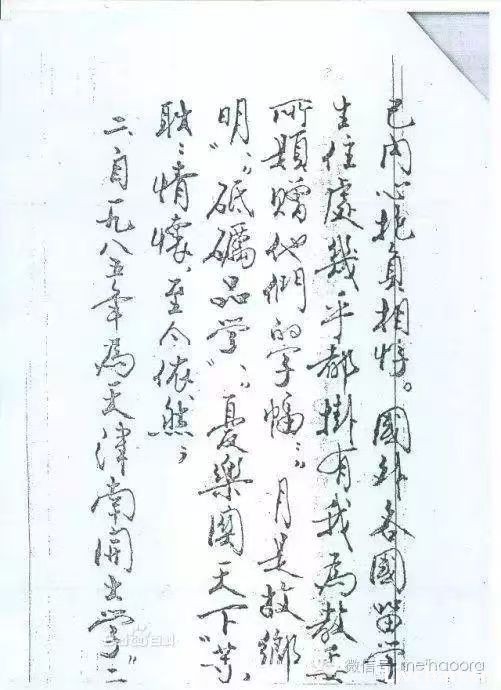 己内心抱負相悖。國外各國留学
生住處幾乎都掛有我為教委
所題贈他們的字幅："月是故鄉
明"、"砥礪品学"、"憂樂關天下"等，
耿〻情懷，至今依然，
二、自一九八五年為天津南開大学"二
微信号: meihaoorg